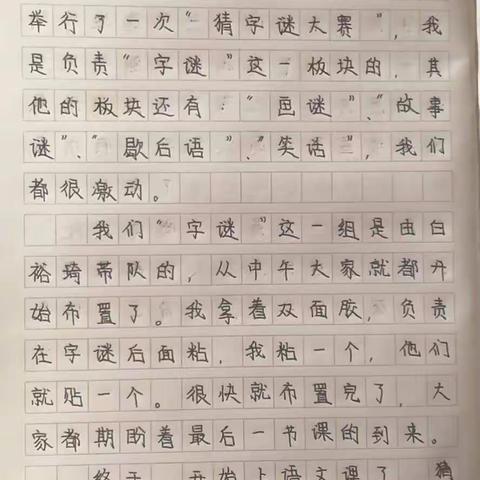 举行了一次“猜字谜大赛”，我
是负责“字谜”这一板块的，其
他的板块还有“画谜”、“故事
谜”、“歇后语”、“笑话”，我们
都很激动。
我们“字谜”这一组是由白
裕琦带队的，从中午大家就都开
始布置了。我拿着双面胶，负责
在字谜后面粘，我粘一个，他们
就贴一个。很快就布置完了，大
家都期盼着最后一节课的到来。
终于，开始上语文课了，猜